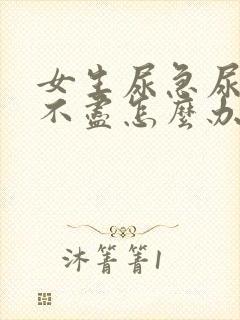 女生尿急尿
不盡怎麼办
沐箐箐1